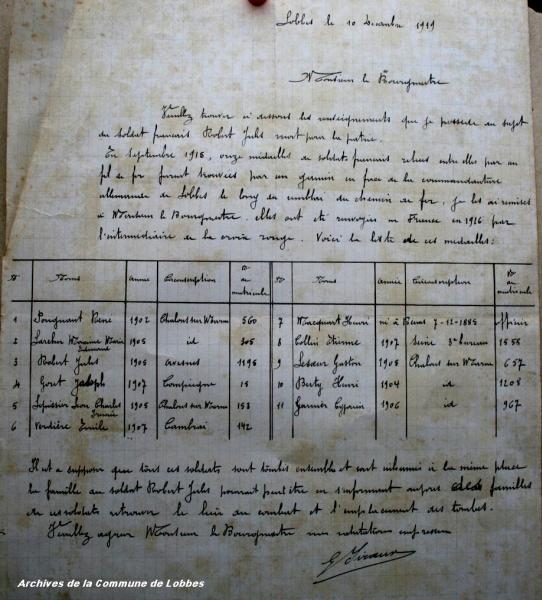 Lobbes le 10 Decembre 1919
Monsieur le Bourgmestre
Veuillez trouver ci dessous les renseignements que je possede au sujet
du soldat francais Robert Jules mort pour la patrie.
En Septembre 1915, onze medailles de soldats francais relies entre elles par un
fil de fer furent trouvées par un gamin en face de la commandanture
allemande de Lobbes le long du remblai du chemin de fer, je les ai remises
à Monsieur le Bourgmestre. elles ont été renvoyées en France en 1916 par
l'intermédiaire de la croix rouge. Voici la liste de ces medailles:
N° Noms année Circonscription N° de matricule N° Noms année Circonscription N° de matricule
1 René 1902 Chalons sur Marne 560 7 Macquart Henri né à 7-12-1885 officier
2 Larcher Marie 1905 id 305 8 Collin Etienne 1907 Seine 3e bureau 1558
3 Robert Jules 1905 Avesnes 1195 9 Lesœur Gaston 1905 Chalons sur Marne 657
4 Gout Joseph 1907 Compiègne 15 10 Berty Henri 1904 id 1208
5 Lepissier Leon Charles 1905 Chalons sur Marne 153 11 Garnier Cyprien 1906 id 967
6 Verdière Emile 1907 Cambrai 142
Il est a supposer que tous ces soldats sont tombés ensemble et sont inhumés à la même place
la famille du soldat Robert Jules pourrait peut être en s'informant aupres des familles
de ces soldats retrouver le lieu du combat et l'emplacement des tombes.
Veuillez agréer Monsieur le Bourgmestre mes salutations empressées
Archives de la Commune de Lobbes